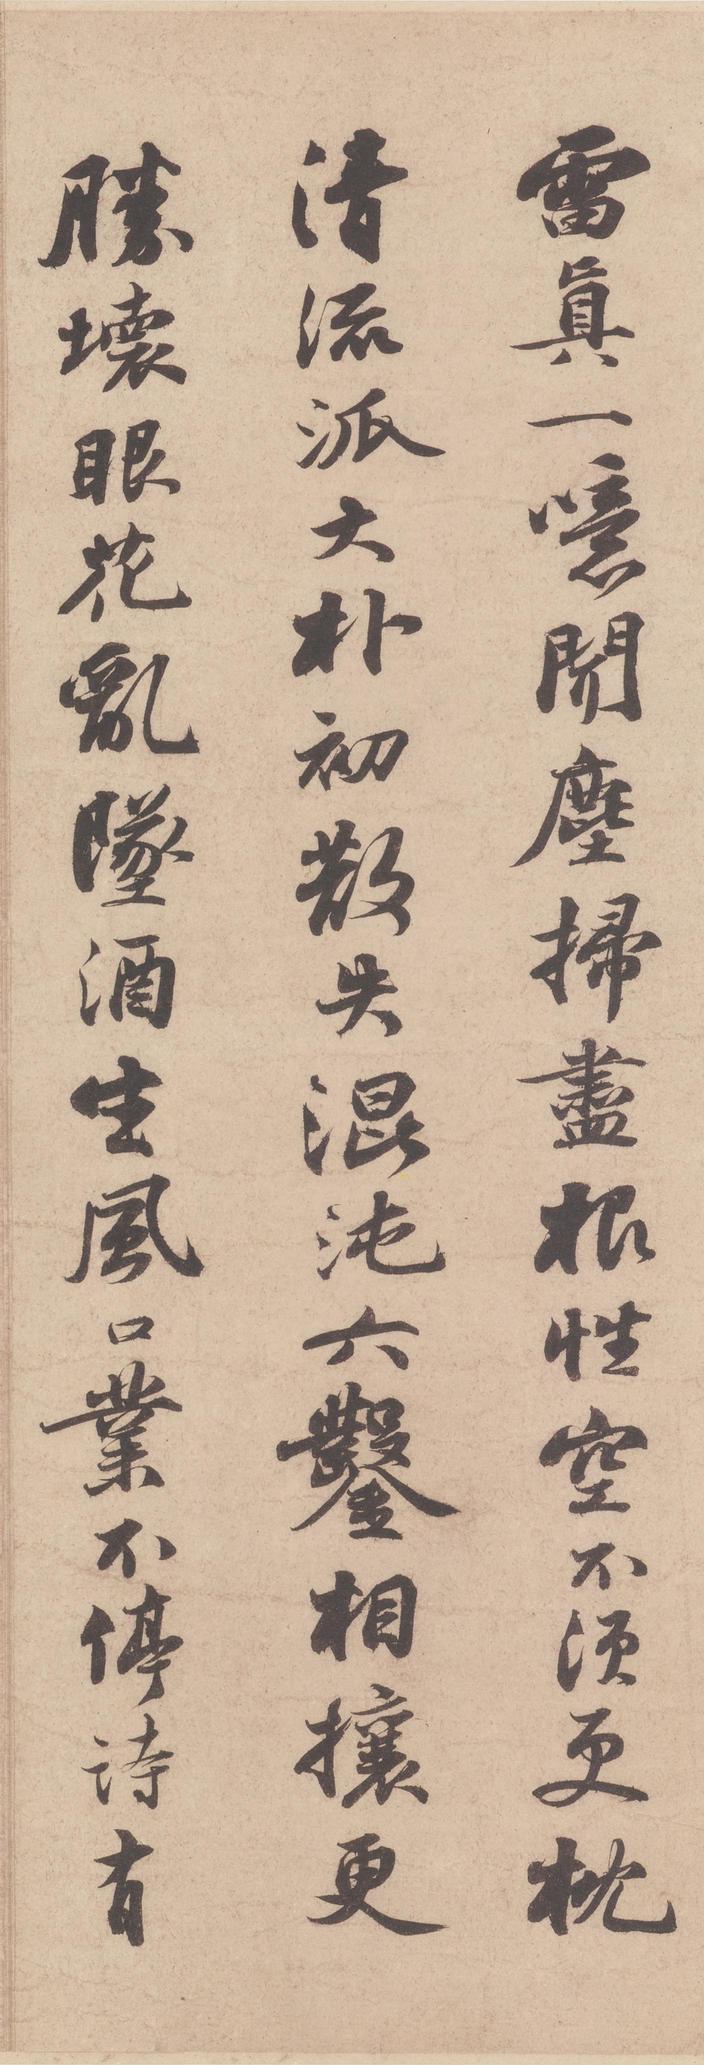 雷真一噫聞塵掃盡根性空不須更枕
清流派大朴初散失混沌六鑿相攘更
勝壞眼花亂墜酒生風口業不停詩有